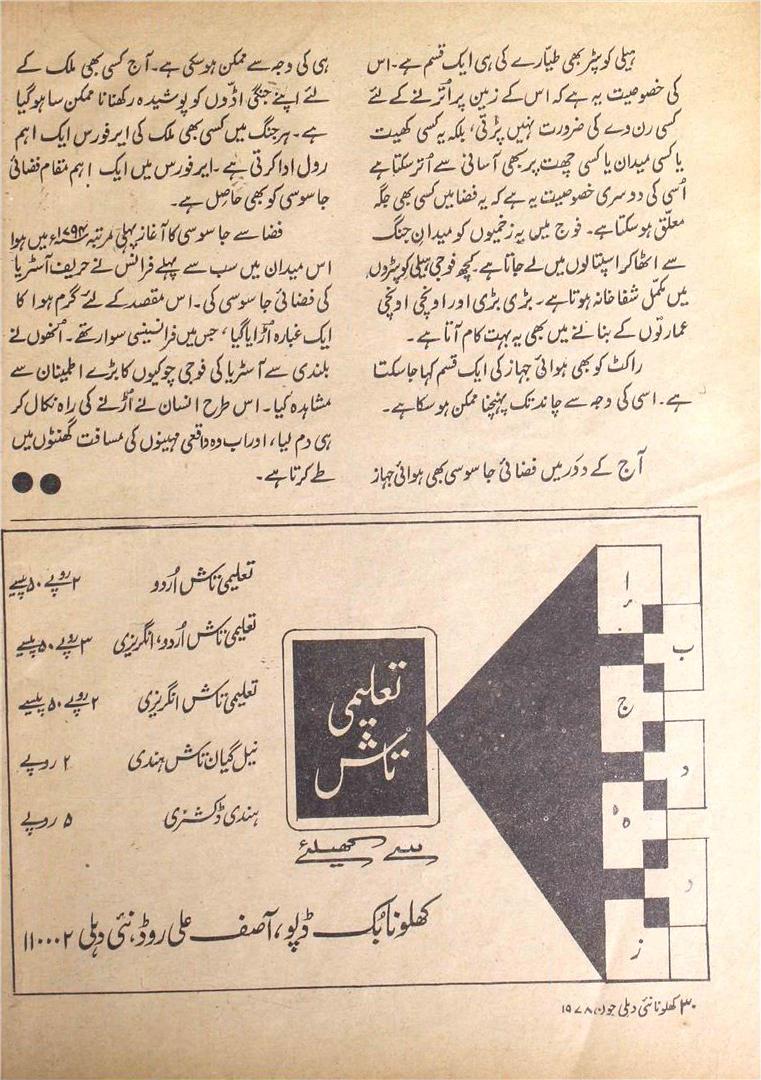 ہیلی کوپٹر بھی طیّارے کی ہی ایک قسم ہے۔ اس
کی خصوصیت یہ ہے کہ اس کے زمین پر اُترنے کے لئے
کسی رن وے کی ضرورت نہیں پڑتی، بلکہ یہ کسی کھیت
یا کسی میدان یا کسی چھت پر بھی آسانی سے اُتر سکتا ہے
اُسی کی دوسری خصوصیت یہ ہے کہ یہ فضا میں کسی بھی جگہ
معلّق ہو سکتا ہے۔ فوج میں یہ زخمیوں کو میدانِ جنگ
سے اٹھا کر اسپتالوں میں لے جاتا ہے۔ کچھ فوجی ہیلی کوپٹروں
میں مکمّل شفاخانہ ہوتا ہے۔ بڑی بڑی اور اونچی اونچی
عمارتوں کے بنانے میں بھی یہ بہت کام آتا ہے۔
راکٹ کو بھی ہوائی جہاز کی ایک قسم کہا جا سکتا
ہے۔ اسی کی وجہ سے چاند تک پہنچنا ممکن ہو سکا ہے۔
آج کے دَور میں فضائی جاسوسی بھی ہوائی جہاز
ہی کی وجہ سے ممکن ہو سکی ہے۔ آج کسی بھی ملک کے
لئے اپنے جنگی اڈوں کو پوشیدہ رکھنا ناممکن سا ہو گیا
ہے۔ ہر جنگ میں کسی بھی ملک کی ایر فورس ایک اہم
رول ادا کرتی ہے۔ ایر فورس میں ایک اہم مقام فضائی
جاسوسی کو بھی حاصل ہے۔
فضا سے جاسوسی کا آغاز پہلی مرتبہ ۱۷۹۴ء میں ہوا
اس میدان میں سب سے پہلے فرانس نے حریف آسٹریا
کی فضائی جاسوسی کی۔ اس مقصد کے لئے گرم ہوا کا
ایک غبارہ اُڑایا گیا، جس میں فرانسیسی سوار تھے۔ اُنھوں نے
بلندی سے آسٹریا کی فوجی چوکیوں کا بڑے اطمینان سے
مشاہدہ کیا۔ اس طرح انسان نے اُڑنے کی راہ نکال کر
ہی دم لیا، اور اب وہ واقعی مہینوں کی مسافت گھنٹوں میں
طے کرتا ہے۔
ا
ب
ج
د
ہ
د
ز
تعلیمی
تاش
سے کھیلئے
تعلیمی تاش اُردو ۲ روپے ۵۰ پیسے
تعلیمی تاش اُردو، انگریزی ۳ روپے ۵۰ پیسے
تعلیمی تاش انگریزی ۲ روپے ۵۰ پیسے
نیل گیان تاش ہندی ۲ روپے
ہندی ڈکشنری ۵ روپے
کھلونا بُک ڈپو، آصف علی روڈ، نئی دہلی ۱۱۰۰۰۲
۳۰ کھلونا نئی دہلی جون ۱۹۷۸